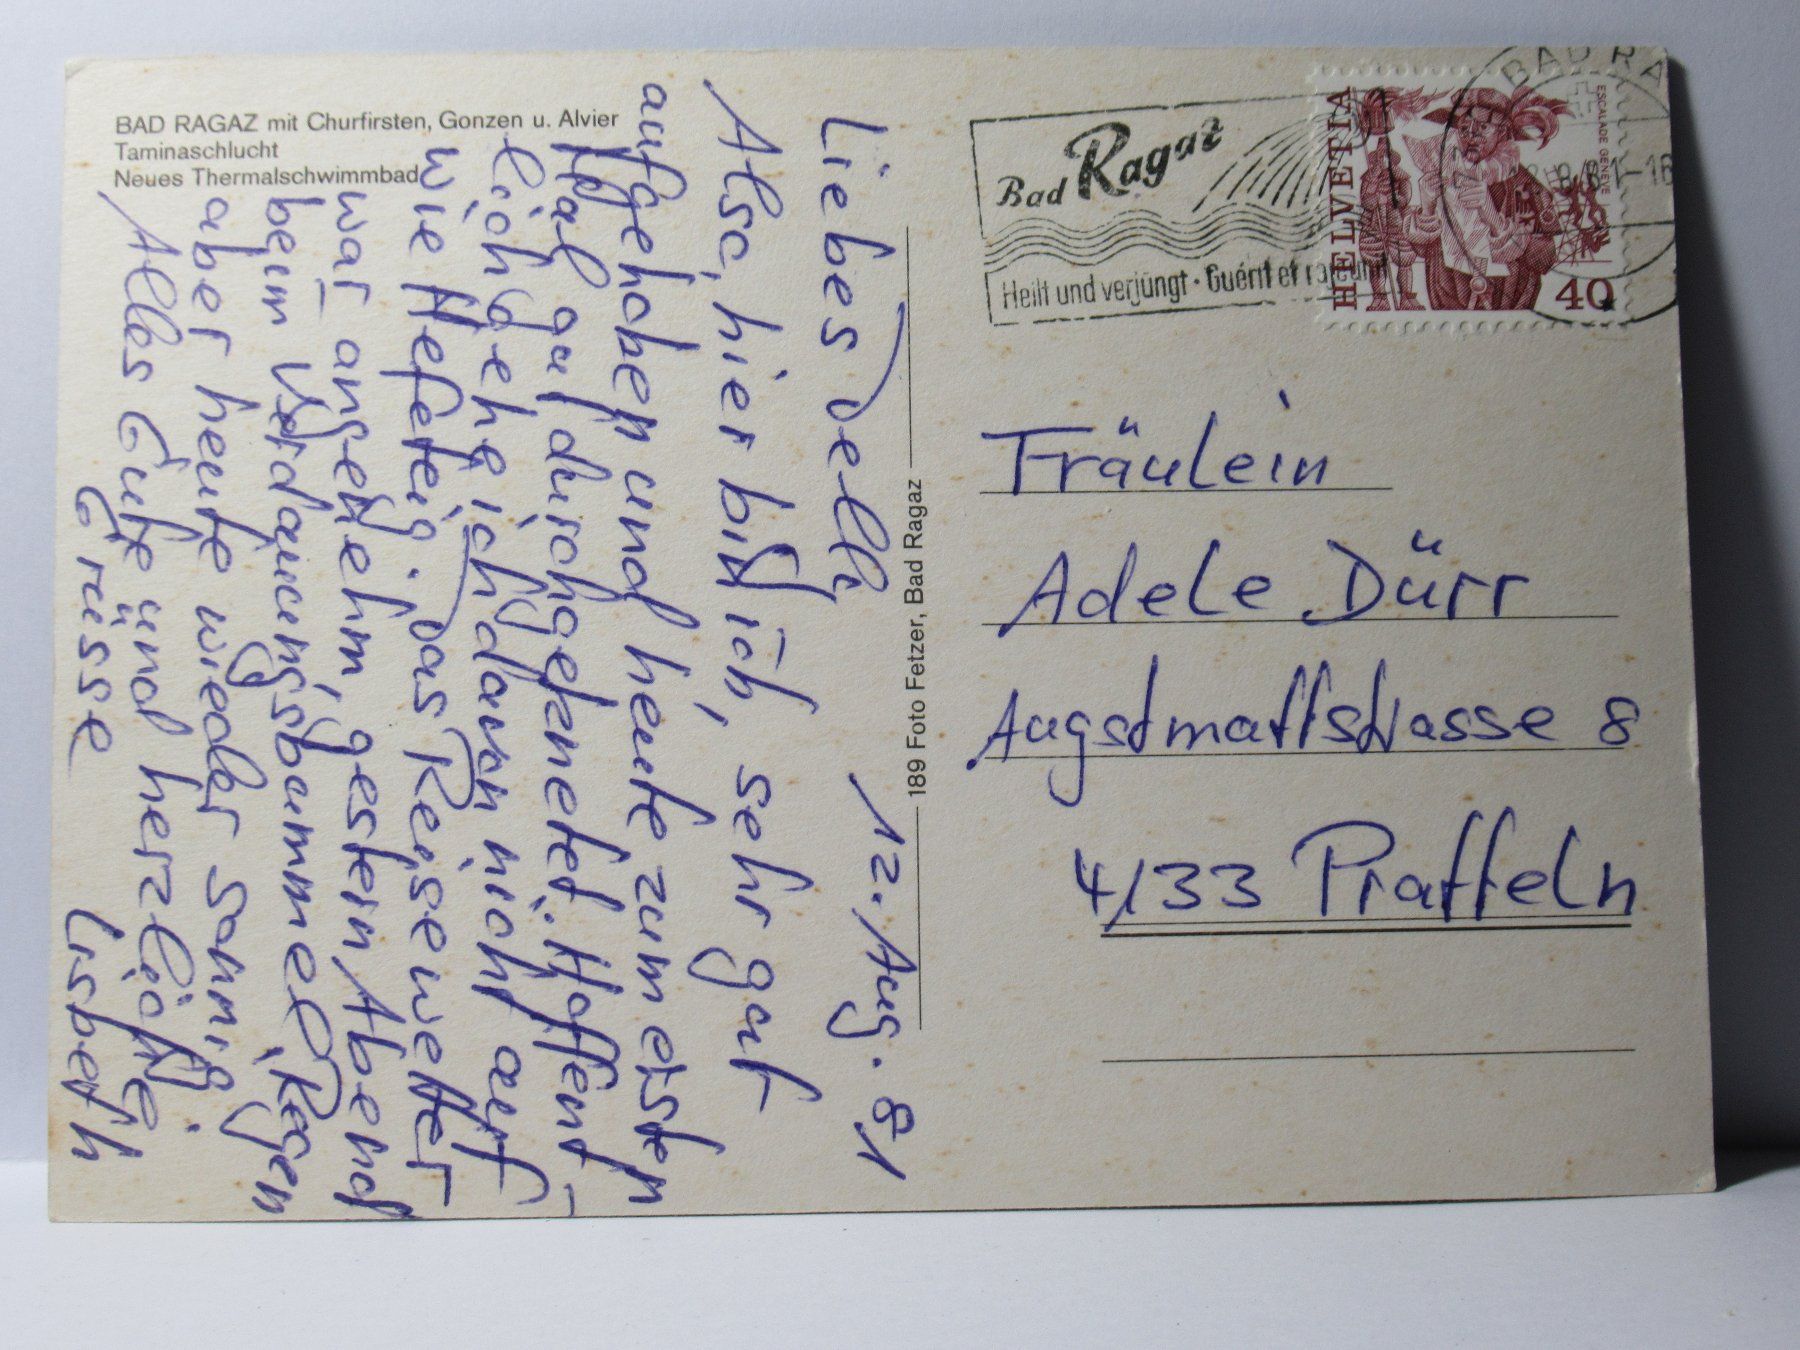 BAD RAGAZ mit Churfirsten, Gonzen u. Alvier
Taminaschlucht
Neues Thermalschwimmbad
12. Aug. 81
Liebes Delli
Also, hier bin ich, sehr gut
aufgehoben und heute zum ersten
Mal gut durchgeknetet. Hoffent-
lich gehe ich dann nicht auf
wie Hefeteig. Das Reisewetter
war angenehm, gestern Abend
beim Verdauungsbummel Regen
aber heute wieder sonnig.
Alles Gute und herzliche
Grüsse Lisbeth
189 Foto Fetzer, Bad Ragaz
Bad Ragaz
Heilt und verjüngt · Guérit et rajeunit
BAD RA
12.8.81-18
HELVETIA
ESCALADE GENÈVE
40
Fräulein
Adele Dürr
Augstmattstrasse 8
4133 Pratteln